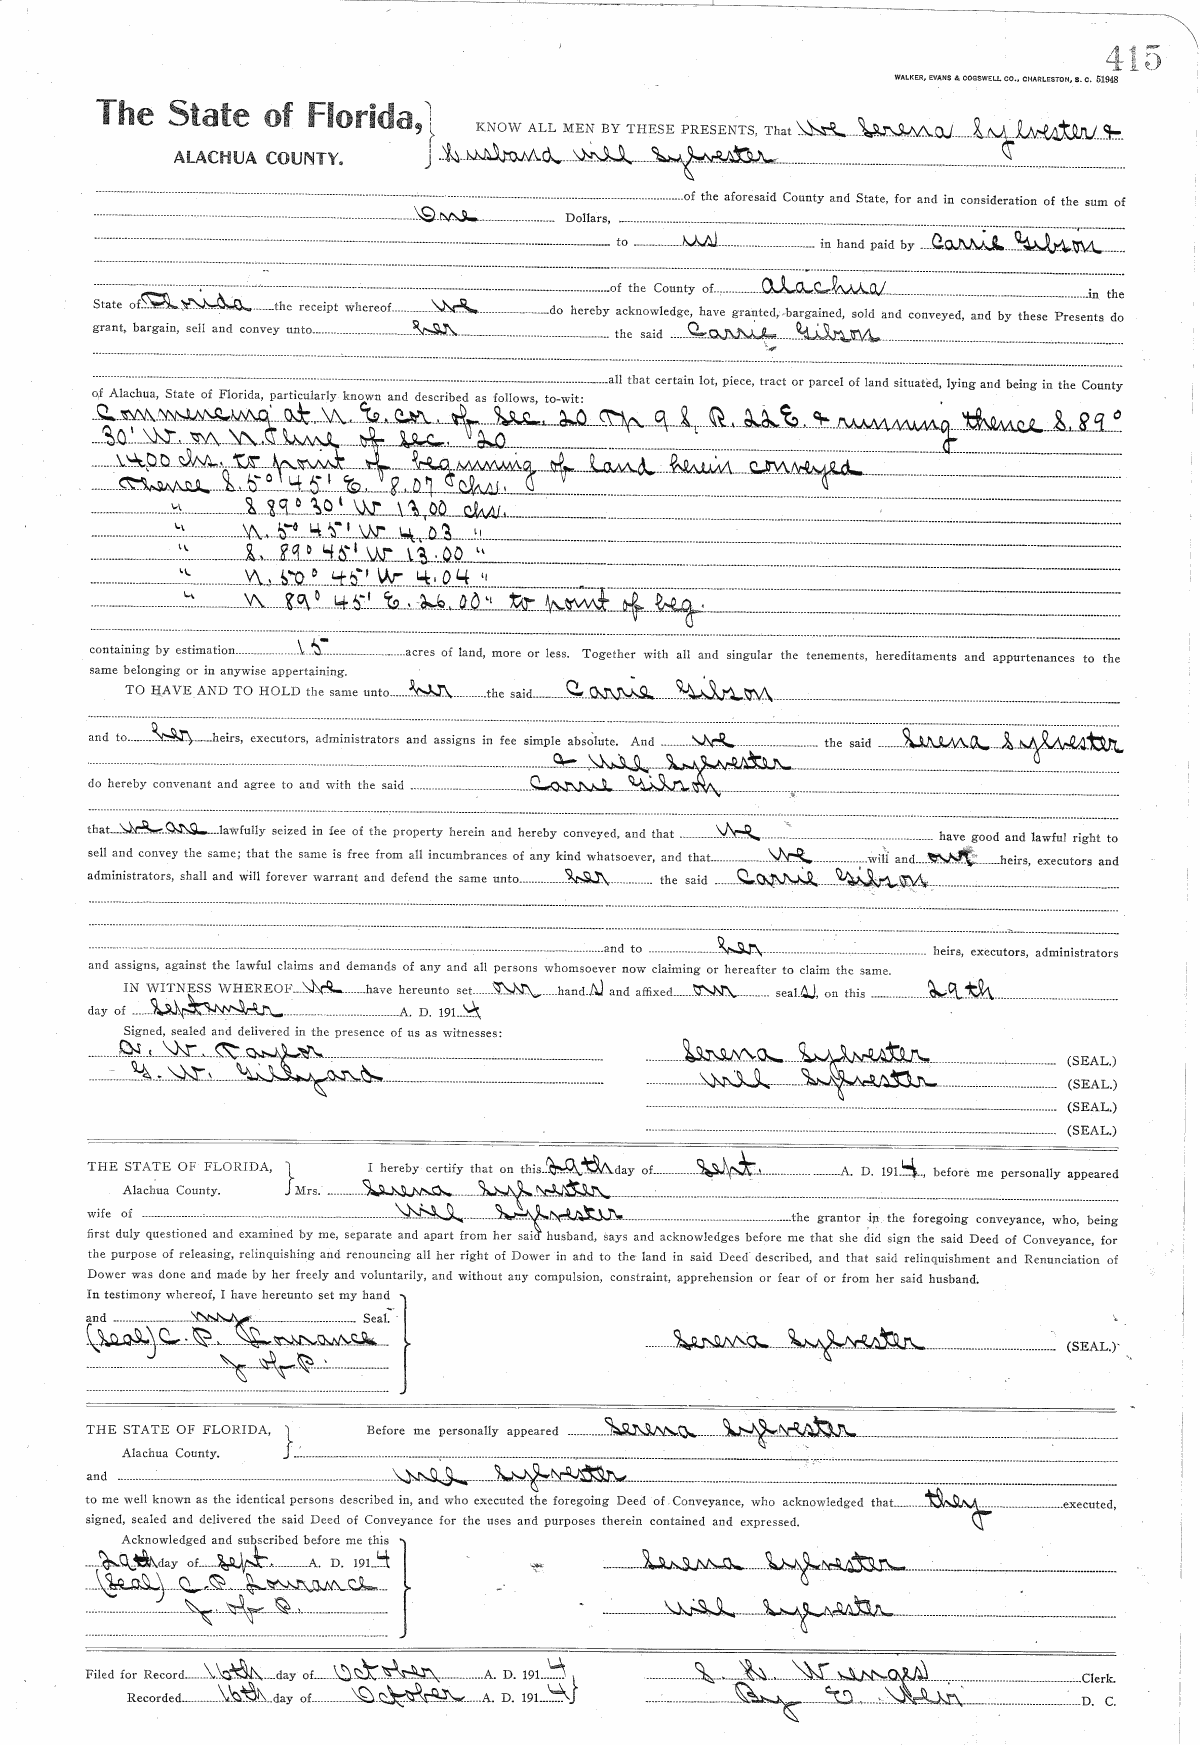 415
WALKER, EVANS & COGSWELL CO., CHARLESTON, S. C. 51948
The State of Florida,
ALACHUA COUNTY.
KNOW ALL MEN BY THESE PRESENTS, That We Serena Sylvester &
husband Will Sylvester
of the aforesaid County and State, for and in consideration of the sum of
One Dollars,
to us in hand paid by Carrie Gibson
of the County of Alachua in the
State of Florida the receipt whereof we do hereby acknowledge, have granted, bargained, sold and conveyed, and by these Presents do
grant, bargain, sell and convey unto her the said Carrie Gibson
all that certain lot, piece, tract or parcel of land situated, lying and being in the County
of Alachua, State of Florida, particularly known and described as follows, to-wit:
Commencing at N. E. cor. of Sec. 20 Tp 9 S, R. 22 E. & running thence S. 89°
30' W. on N. line of sec. 20
1400 chs. to point of beginning of land herein conveyed
Thence S. 5° 45' E. 8.07 chs.
" S 89° 30' W 13.00 chs.
" N. 5° 45' W 4.03 "
" S. 89° 45' W 13.00 "
" N. 50° 45' W 4.04 "
" N 89° 45' E. 26.00 " to point of beg.
containing by estimation 15 acres of land, more or less. Together with all and singular the tenements, hereditaments and appurtenances to the
same belonging or in anywise appertaining.
TO HAVE AND TO HOLD the same unto her the said Carrie Gibson
and to her heirs, executors, administrators and assigns in fee simple absolute. And we the said Serena Sylvester
& Will Sylvester
do hereby convenant and agree to and with the said Carrie Gibson
that we are lawfully seized in fee of the property herein and hereby conveyed, and that we have good and lawful right to
sell and convey the same; that the same is free from all incumbrances of any kind whatsoever, and that we will and our heirs, executors and
administrators, shall and will forever warrant and defend the same unto her the said Carrie Gibson
and to her heirs, executors, administrators
and assigns, against the lawful claims and demands of any and all persons whomsoever now claiming or hereafter to claim the same.
IN WITNESS WHEREOF we have hereunto set our hand s and affixed our seal s, on this 29th
day of September A. D. 1914
Signed, sealed and delivered in the presence of us as witnesses:
A. W. Taylor
G. W. Gillyard
Serena Sylvester (SEAL.)
Will Sylvester (SEAL.)
(SEAL.)
(SEAL.)
THE STATE OF FLORIDA,
Alachua County.
I hereby certify that on this 29th day of Sept. A. D. 1914, before me personally appeared
Mrs. Serena Sylvester
wife of Will Sylvester the grantor in the foregoing conveyance, who, being
first duly questioned and examined by me, separate and apart from her said husband, says and acknowledges before me that she did sign the said Deed of Conveyance, for
the purpose of releasing, relinquishing and renouncing all her right of Dower in and to the land in said Deed described, and that said relinquishment and Renunciation of
Dower was done and made by her freely and voluntarily, and without any compulsion, constraint, apprehension or fear of or from her said husband.
In testimony whereof, I have hereunto set my hand
and my Seal.
(Seal) C. P. Lourance
J. of P.
Serena Sylvester (SEAL.)
THE STATE OF FLORIDA,
Alachua County.
Before me personally appeared Serena Sylvester
and Will Sylvester
to me well known as the identical persons described in, and who executed the foregoing Deed of Conveyance, who acknowledged that they executed,
signed, sealed and delivered the said Deed of Conveyance for the uses and purposes therein contained and expressed.
Acknowledged and subscribed before me this
29th day of Sept. A. D. 1914
(Seal) C. P. Lourance
J. of P.
Serena Sylvester
Will Sylvester
Filed for Record 16th day of October A. D. 1914
Recorded 16th day of October A. D. 1914
S. H. Wienges Clerk.
By E. Weir D. C.